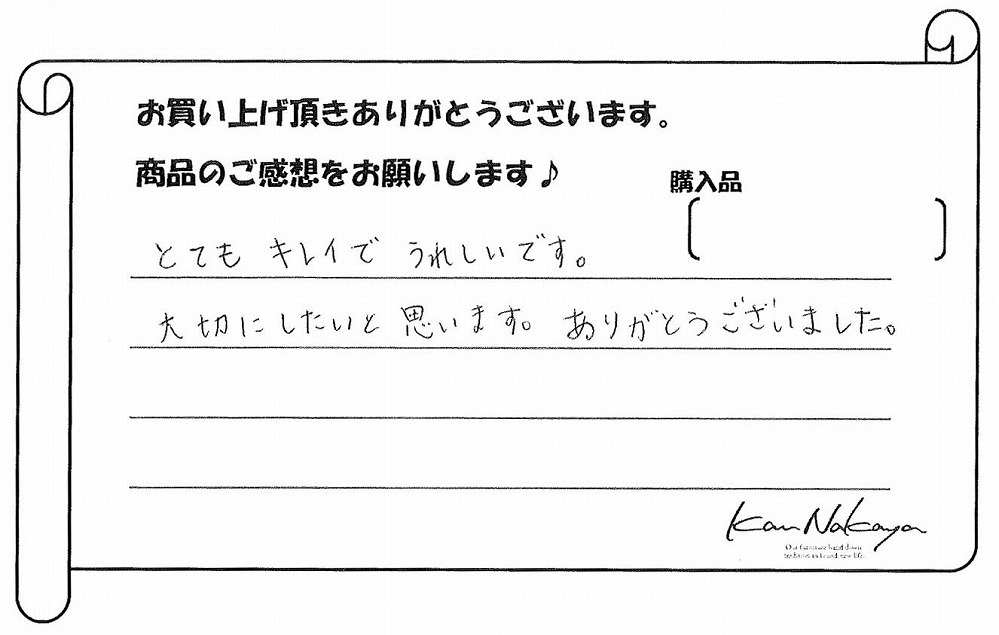 お買い上げ頂きありがとうございます。
商品のご感想をお願いします♪
購入品
とても キレイで うれしいです。
大切にしたいと 思います。 ありがとうございました。
Kan Nakaya